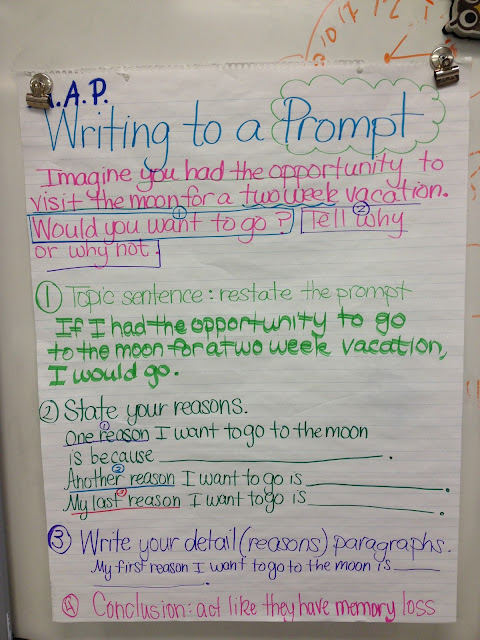 .A.P.
Writing to a Prompt
Imagine you had the opportunity to
visit the moon for a two week vacation.
Would you want to go? Tell why
1 2
or why not.
1 Topic sentence: restate the prompt
If I had the opportunity to go
to the moon for a two week vacation,
I would go.
2 State your reasons.
1
One reason I want to go to the moon
is because ____________.
2
Another reason I want to go is ____________.
3
My last reason I want to go is ____________.
3 Write your detail (reasons) paragraphs.
My first reason I want to go to the moon is ____
____________.
4 Conclusion: act like they have memory loss
10 11 12 1